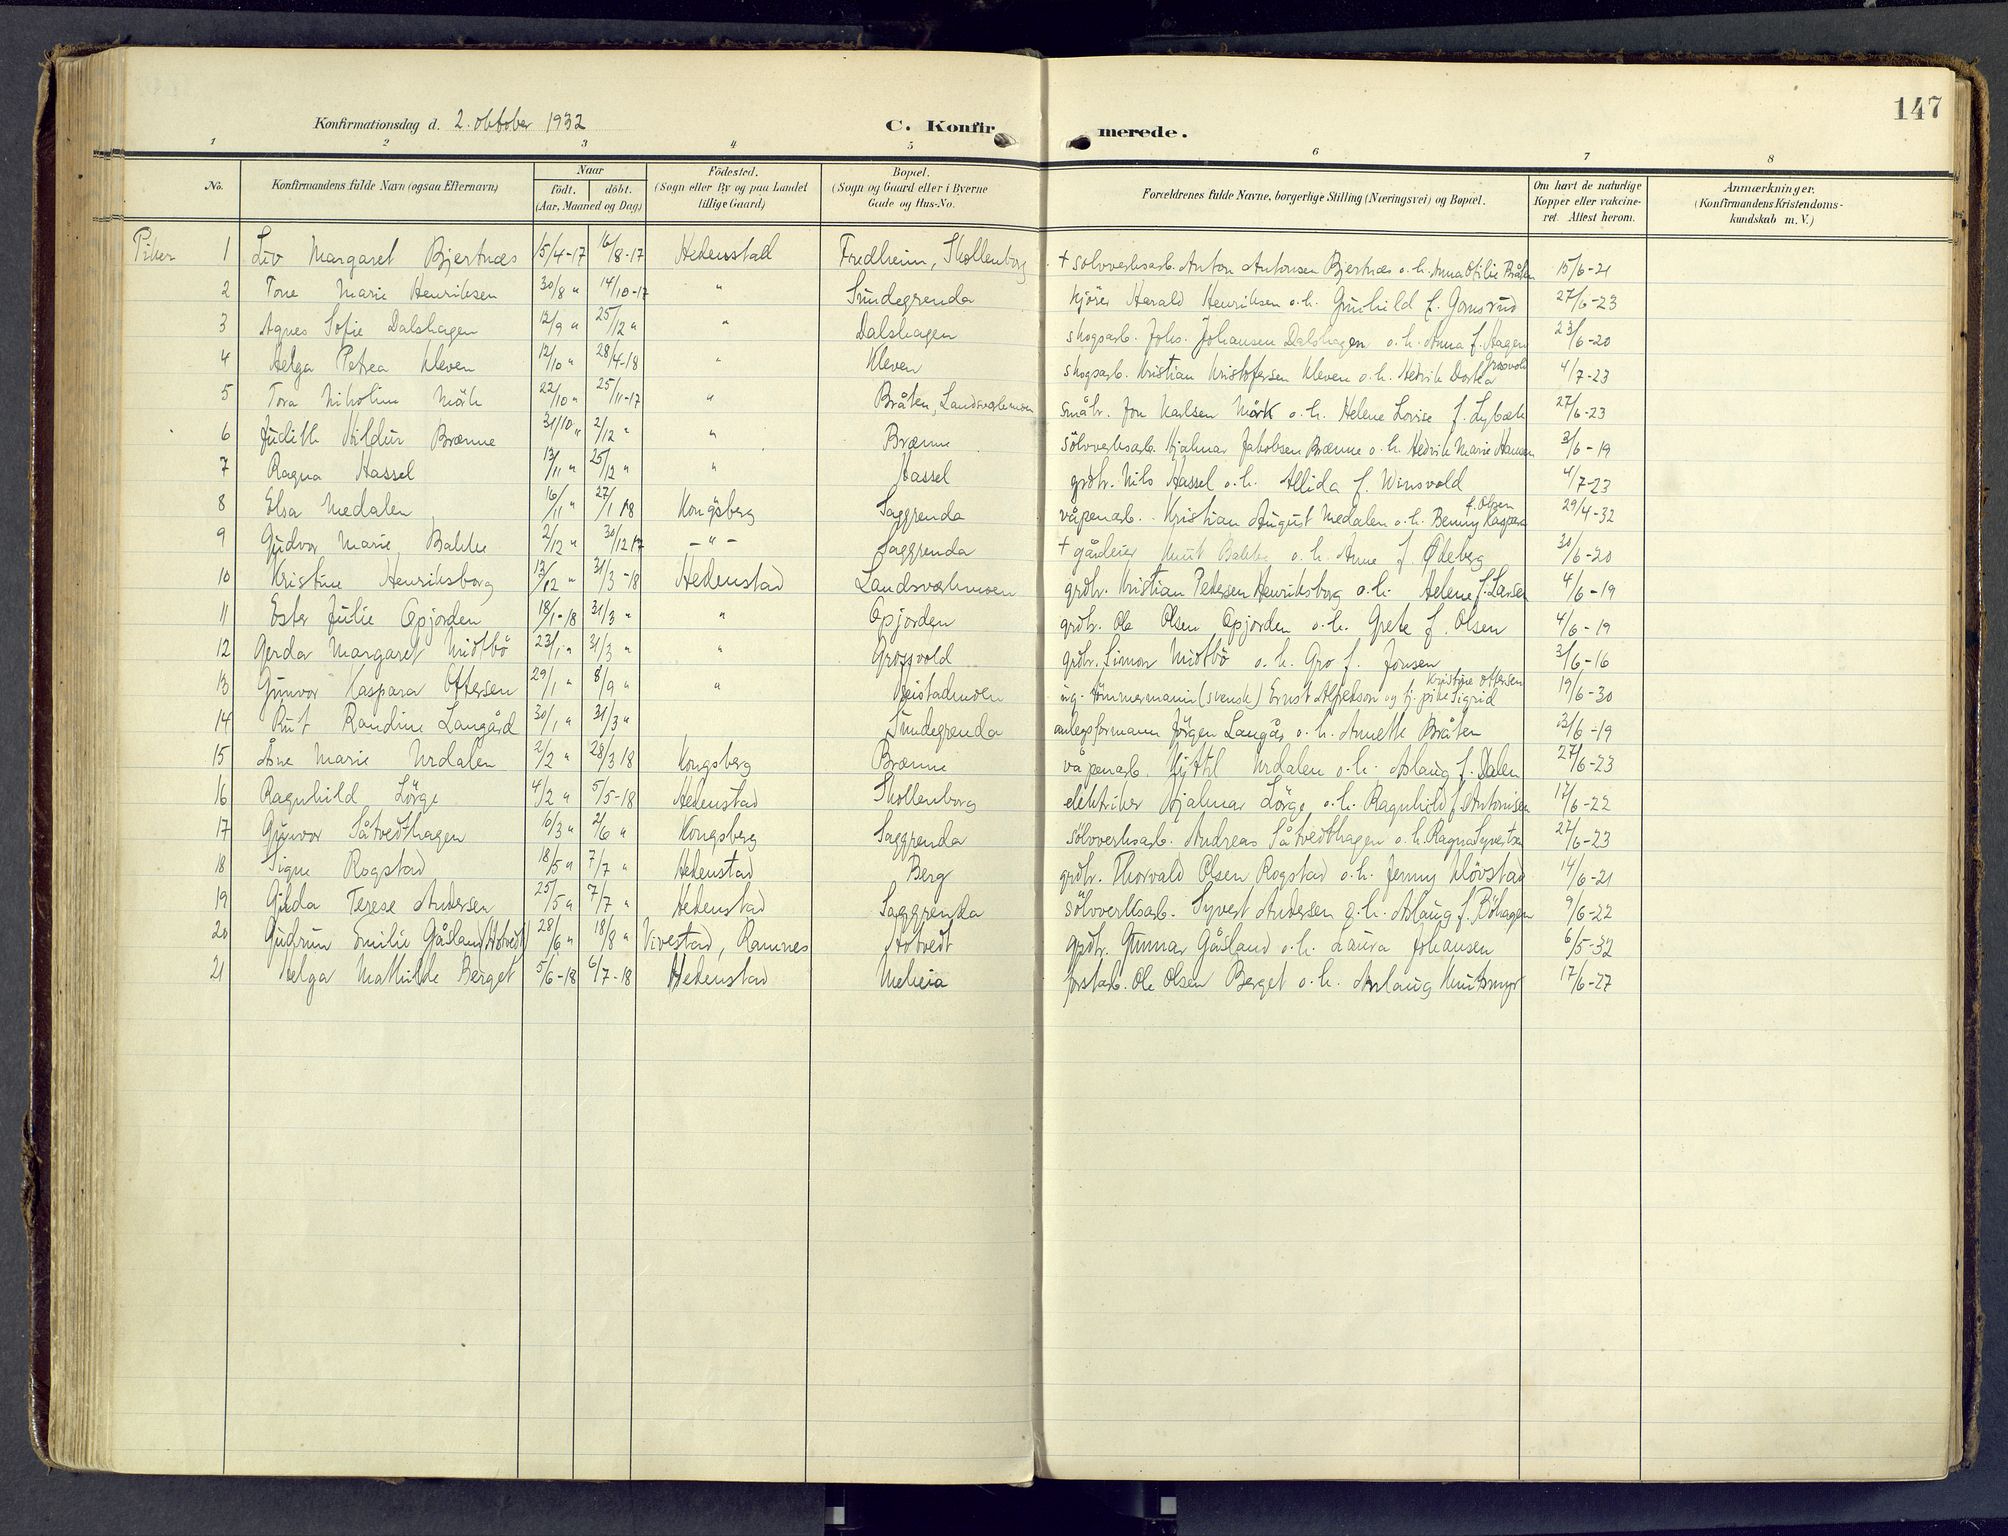 147
Konfirmationsdag d. 2. oktober 1932 C. Konfirmerede.
1 2 3 4 5 6 7 8
No. Konfirmandens fulde Navn (ogsaa Efternavn) Naar födt. döbt. (Aar, Maaned og Dag) Födested. (Sogn eller By og paa Landet tillige Gaard) Bopæl. (Sogn og Gaard eller i Byerne Gade og Hus-No. Forældrenes fulde Navne, borgerlige Stilling (Næringsvei) og Bopæl. Om havt de naturlige Kopper eller vakcineret. Attest herom. Anmærkninger. (Konfirmandens Kristendomskundskab m. V.)
Piker 1 Liv Margaret Bjertnæs 15/4-17 16/8-17 Hedenstad Fredheim, Skollenborg + sölvverksarb. Anton Antonsen Bjertnæs o.h. Anna Otilie Bråten 15/6-21
2 Tone Marie Henriksen 30/8 " 14/10-17 " Sundegrenda kjörer Harald Henriksen o.h. Gunhild f. Gamsrud 27/6-23
3 Agnes Sofie Dalshagen 12/9 " 25/12 " " Dalshagen skogsarb. Johs. Johansen Dalshagen o.h. Anna f. Hagen 23/6-20
4 Helga Petrea Kleven 12/10 " 28/4-18 " Kleven skogsarb. Kristian Kristofersen Kleven o.h. Hedvik Dortea Grosvold 4/7-23
5 Tora Nikoline Mörk 22/10 " 25/11-17 " Bråten, Landsverkmoen småbr. Jon Karlsen Mörk o.h. Helene Lovise f. Lybæk 27/6-23
6 Judith Hildur Brænne 31/10 " 2/12 " " Brænne sölvverksarb. Hjalmar Jakobsen Brænne o.h. Hedvik Marie Hansen 3/6-19
7 Ragna Hassel 13/11 " 25/12 " " Hassel grdbr. Nils Hassel o.h. Allida f. Winsvold 4/7-23
8 Elsa Medalen 16/11 " 27/1 18 Kongsberg Saggrenda våpenarb. Kristian August Medalen o.h. Benny Kaspara f. Olsen 29/4-32
9 Gudvor Marie Bakke 2/12 " 30/12 17 - " - Saggrenda + gårdeier Knut Bakke o.h. Anne f. Ødeberg 30/6-20
10 Kristine Henriksborg 13/12 " 31/3-18 Hedenstad Landsverkmoen grdbr. Kristian Pedersen Henriksborg o.h. Helene f. Larsen 4/6-19
11 Ester Julie Opjorden 18/1-18 31/3 " " Opjorden grdbr. Ole Olsen Opjorden o.h. Grete f. Olsen 4/6-19
12 Gerda Margaret Midtbö 23/1 " 31/3 " " Grosvold grdbr. Simon Midtbö o.h. Gro f. Jonsen 3/6-16
13 Gunvor Kaspara Ottersen 29/1 " 8/9 " " Heistadmoen ug. tömmermann (svensk) Ernst Alfredson og tj. pike Sigrid Kristine Ottersen 19/6-30
14 Rut Randine Langård 30/1 " 31/3 " Sundegrenda anlegsformann Jörgen Langås o.h. Annette Bråten 3/6-19
15 Åne Marie Urdalen 2/2 " 28/3 18 Kongsberg Brænne våpenarb. Kjittil Urdalen o.h. Aslaug f. Dalen 27/6-23
16 Ragnhild Lörge 4/2 " 5/5-18 Hedenstad Skollenborg elektriker Hjalmar Lörge o.h. Ragnhild f. Antonisen 17/6-22
17 Gunvor Såtvedthagen 6/3 " 2/6 " Kongsberg Saggrenda sölvverksarb. Andreas Såtvedthagen o.h. Ragna Syvertsen 27/6-23
18 Signe Rogstad 18/5 " 7/7 " Hedenstad Berg grdbr. Thorvald Olsen Rogstad o.h. Jenny Klövstad 14/6-21
19 Gilda Terese Andersen 25/5 " 7/7 " Hedenstad Saggrenda sölvverksarb. Syvert Andersen o.h. Aslaug f. Böhagen 9/6-22
20 Gudrun Emilie Gåsland (Hotvedt) 28/6 " 18/8 " Vivestad, Ramnes Hotvedt grdbr. Gunnar Gåsland o.h. Laura Johansen 6/5-32
21 Helga Mathilde Berget 5/6-18 6/7-18 Hedenstad Meheia forstarb. Ole Olsen Berget o.h. Aslaug Knutsmyr 17/6-27